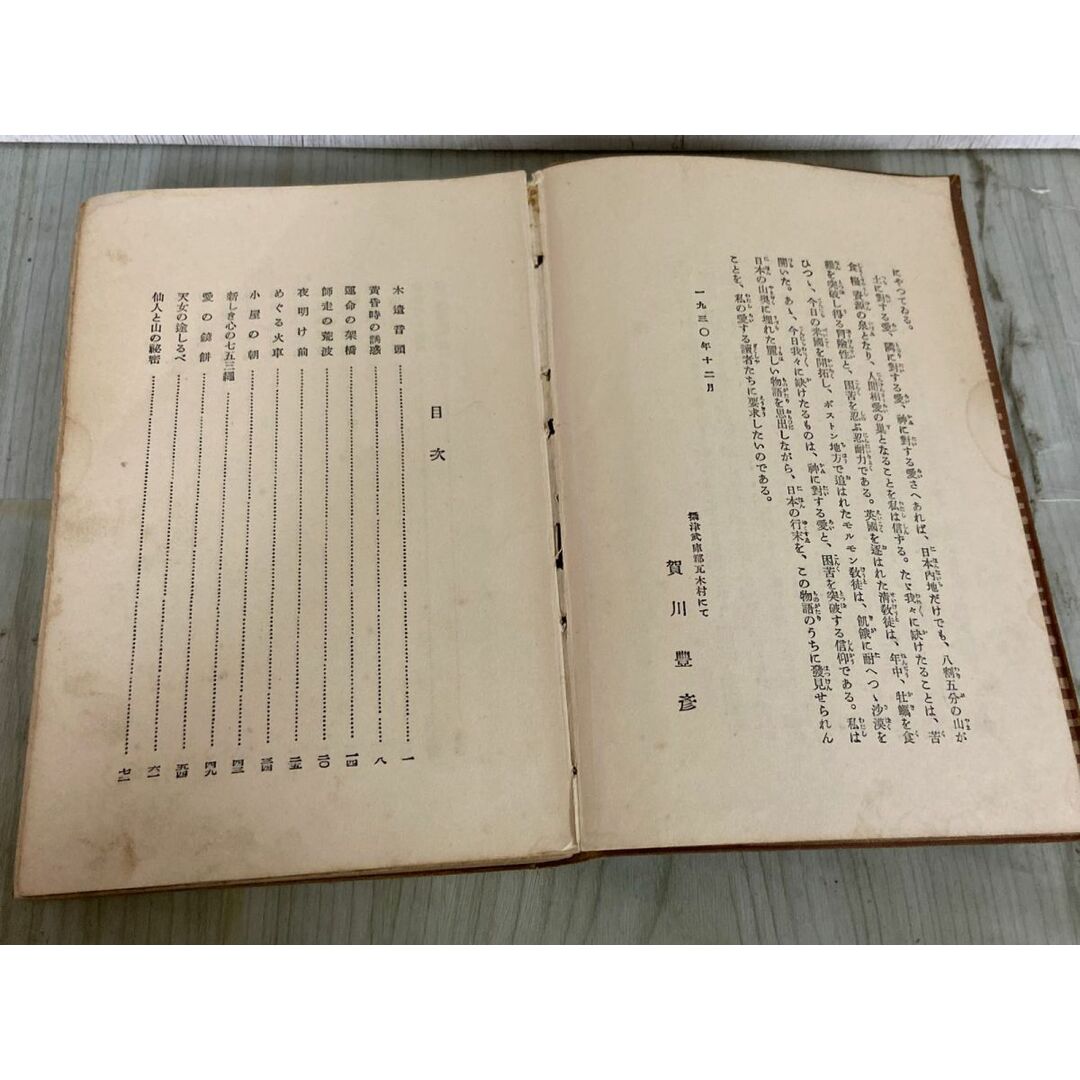 にやつてゐる。
土に對する愛、隣に對する愛、神に對する愛さへあれば、日本內地だけでも、八割五分の山が
食糧資源の泉となり、人間相愛の巢となることを私は信する。たゞ我々に缺けたることは、苦
難を突破し得る冒險性と、困苦を忍ぶ忍耐力である。英國を逐はれた淸敎徒は、年中、牡蠣を食
ひつゝ、今日の米國を開拓し、ボストン地方で追はれたモルモン敎徒は、飢餓に耐へつゝ沙漠を
開いた。あゝ、今日我々に缺けたるものは、神に對する愛と、困苦を突破する信仰である。私は
日本の山奧に埋れた麗しい物語を思出しながら、日本の行末を、この物語のうちに發見せられん
ことを、私の愛する讀者たちに要求したいのである。
一九三〇年十二月
攝津武庫郡瓦木村にて
賀川豐彥
目次
木遣音頭……一
黃昏時の誘惑……八
運命の架橋……一四
師走の荒波……二〇
夜明け前……二五
めぐる火車……三四
小屋の朝……四三
新しき心の七五三繩……四九
愛の鏡餅……五四
天女の途しるべ……六一
仙人と山の祕密……七二